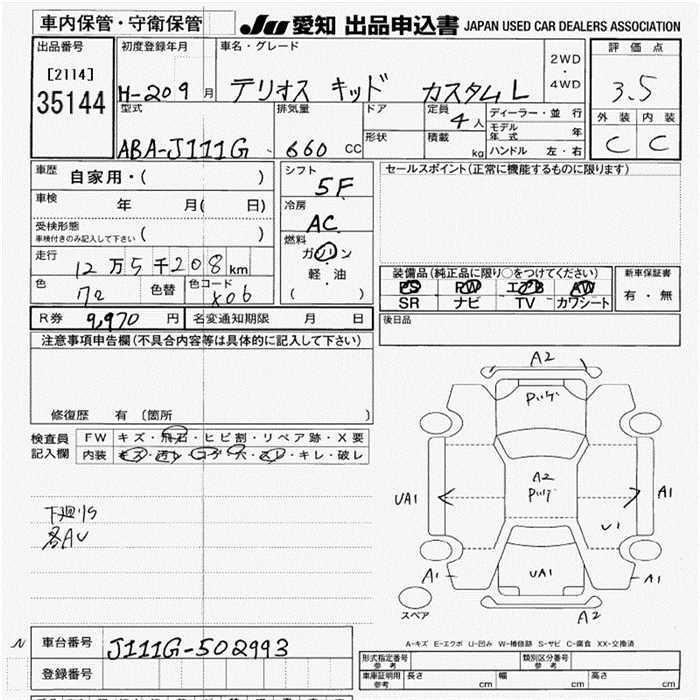 車内保管・守衛保管
JU 愛知 出品申込書 JAPAN USED CAR DEALERS ASSOCIATION
出品番号
[2114]
35144
初度登録年月
H-209月
車名・グレード
テリオス キッド カスタム L
2WD
・
4WD
評価点
3.5
外装 内装
C C
型式
ABA-J111G
排気量
660 CC
ドア
形状
定員
4人
積載
kg
ディーラー・並行
モデル年式 年
ハンドル 左・右
車歴 自家用・( )
車検 年 月( 日)
受検形態
車検付きのみ記入して下さい ( )
走行 12万5千208km
色 色替 色コード X06
シフト
5F
冷房
AC
燃料
ガソリン
軽・油
( )
セールスポイント(正常に機能するものに限ります)
装備品(純正品に限り○をつけてください)
PS PW エアB AW
SR ナビ TV カワシート
新車保証書
有・無
R券 9,970円 名変通知期限 月 日
後日品
注意事項申告欄(不具合内容等は具体的に記入して下さい)
修復歴 有 〔箇所 〕
検査員
記入欄
FW キズ・飛石・ヒビ割・リペア跡・X要
内装 キズ・汚レ・コゲ・穴・スレ・キレ・破レ
下廻りS
各AU
A2
A2
UA1
A1
U1
UA1
A1
A1
A2
スペア
A-キズ E-エクボ U-凹み W-補修跡 S-サビ C-腐食 XX-交換済
N
車台番号 J111G-502993
登録番号
形式指定番号
参考
類別区分番号
参考
車庫証明用
参考
長さ cm 幅 cm 高さ cm